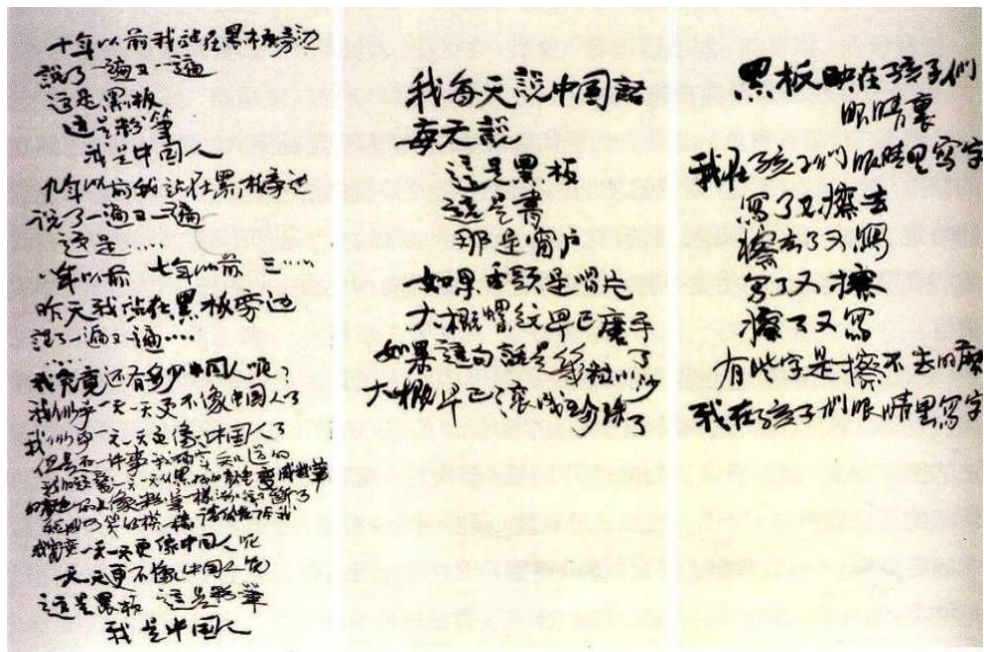 十年以前我站在黑板旁边
說了一遍又一遍
这是黑板
这是粉筆
我是中国人
九年以前我站在黑板旁边
说了一遍又一遍
这是……
年以前 七年以前 三……
昨天我站在黑板旁边
說了一遍又一遍……
我究竟还有多少中国人呢?
我似乎一天一天更不像中国人了
我似乎一天一天更像中国人了
但是有一件事我确实知道的
我的頭髮一天一天从黑板的顏色變成粉筆
的顏色
我究竟一天一天更像中国人呢
一天天更不像中国人呢
这是黑板 这是粉筆
我是中国人
我每天說中国話
每天說
這是黑板
這是書
那是窗户
如果舌頭是唱片
大概螺紋早已磨平了
如果這句話是一粒沙
大概早已滾成珍珠了
黑板映在孩子們
眼睛裏
我在孩子们眼睛里写字
寫了又擦去
擦去了又寫
寫了又擦
擦了又寫
有些字是擦不去的
我在孩子们眼睛里写字